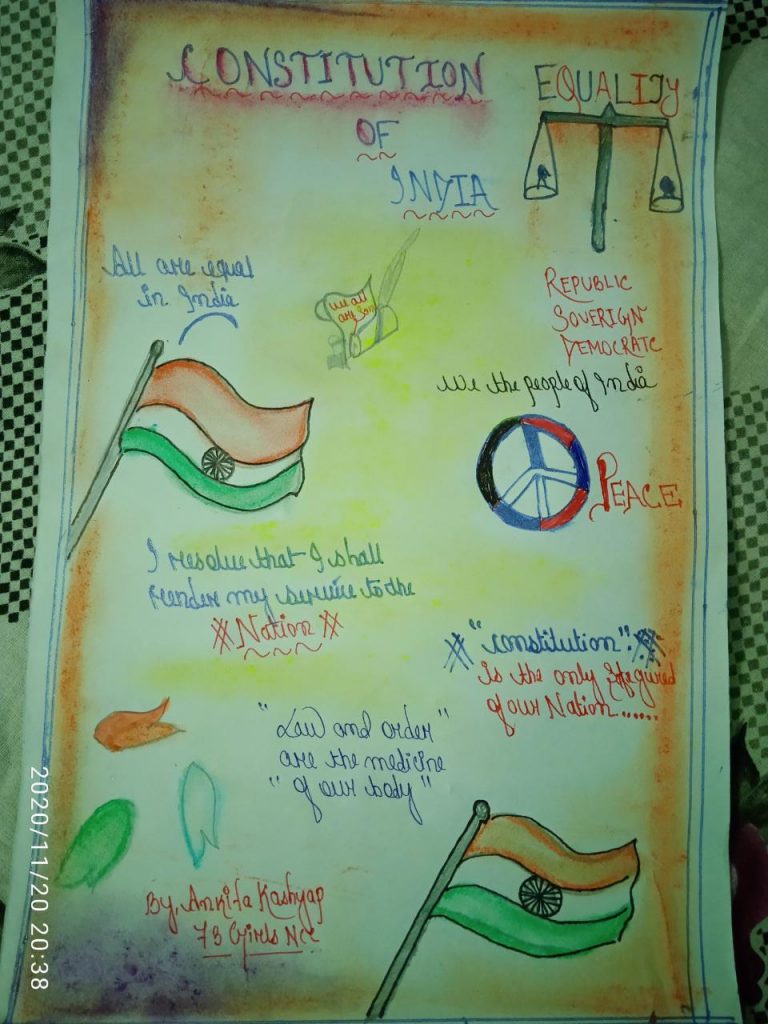 CONSTITUTION
OF
INDIA
EQUALITY
All are equal
in India
we all
are
REPUBLIC
SOVERIGN
DEMOCRATC
We the people of India
PEACE
I resolve that I shall
render my service to the
Nation
"constitution"
Is the only
of our Nation......
"Law and order"
are the medicine
"of our body"
By, Ankita Kashyap
73 Girls Ncc
2020/11/20 20:38